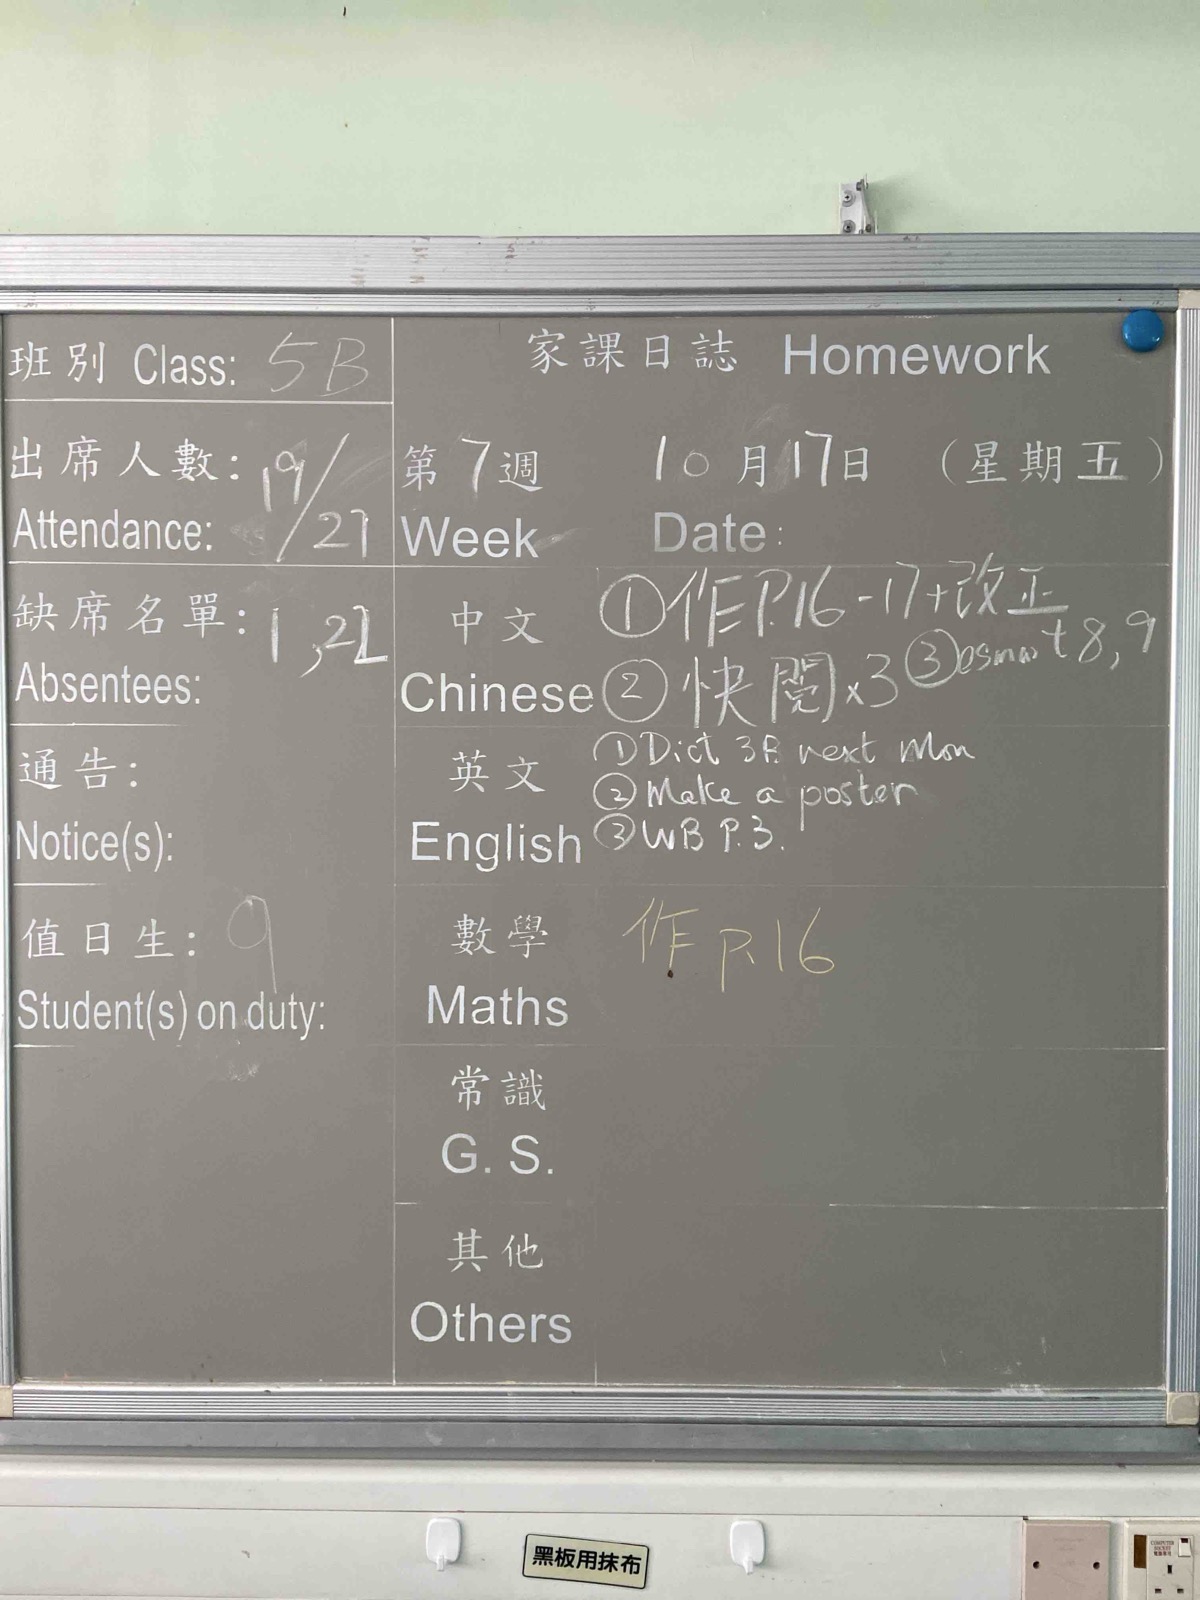 班別 Class: 5B
出席人數: 19/21
Attendance:
缺席名單: 1,22
Absentees:
通告:
Notice(s):
值日生: 9
Student(s) on duty:
家課日誌 Homework
第7週 10月17日 (星期五)
Week Date:
中文 ①作P.16-17+改正
Chinese ②快閱x3 ③esmart 8,9
英文 ①Dict 3B next Mon
②Make a poster
English ③WB P.3.
數學 作 P.16
Maths
常識
G. S.
其他
Others
黑板用抹布
COMPUTER
SOCKET